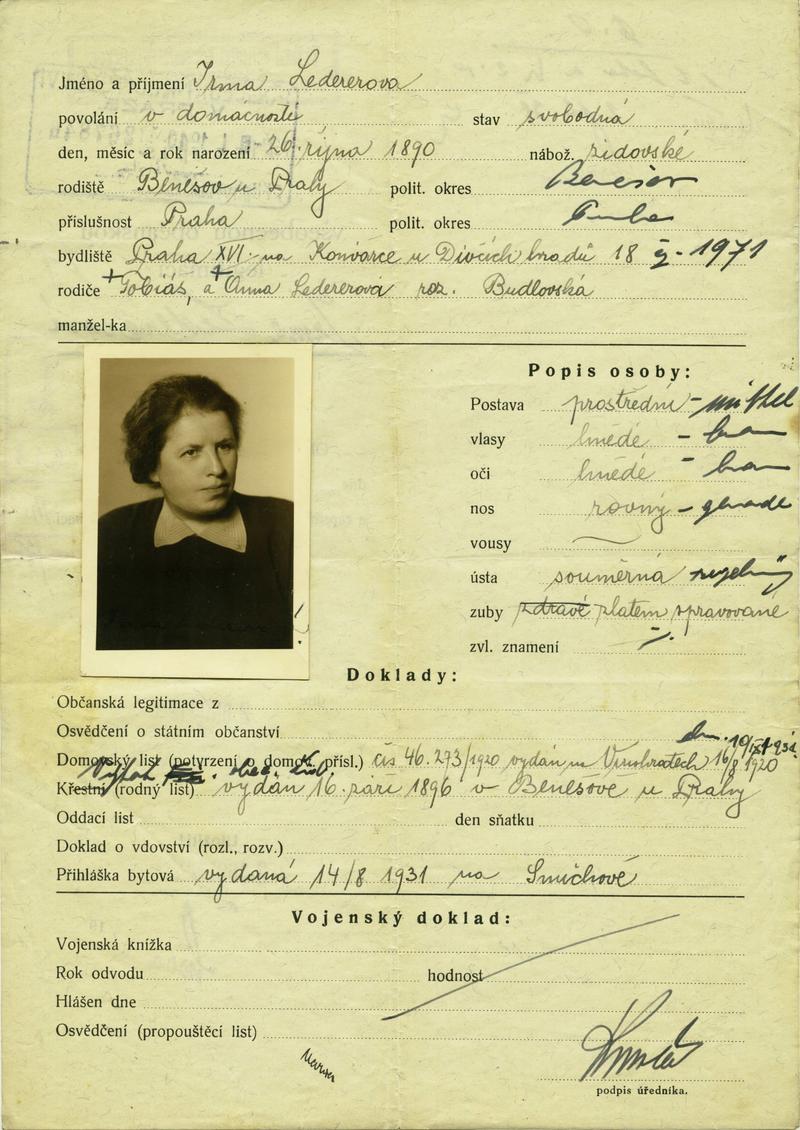 Jméno a příjmení Irma Ledererova
povolání v domácnosti stav svobodná
den, měsíc a rok narození 26. října 1890 nábož. židovské
rodiště Benešov u Prahy polit. okres Benešov
příslušnost Praha polit. okres Praha
bydliště Praha XVI. na Konvarce u Dívčích hradů 18 1971
rodiče + Tobiáš, a + Anna Ledererová roz. Budlovská
manžel-ka
Popis osoby:
Postava prostřední - mittel
vlasy hnědé - braun
oči hnědé - braun
nos rovný - gerade
vousy
ústa souměrná
zuby zdravé zlatem spravované
zvl. znamení
Doklady:
Občanská legitimace z
Osvědčení o státním občanství
Domovský list (potvrzení o domov. přísl.) čís 46.273/1920 vydán na Vinohratech 16/8 1920
Křestní (rodný list) vydán 16. září 1896 v Benešove u Prahy
Oddací list den sňatku
Doklad o vdovství (rozl., rozv.)
Přihláška bytová vydaná 14/8 1931 na Smíchově
Vojenský doklad:
Vojenská knížka
Rok odvodu hodnost
Hlášen dne
Osvědčení (propouštěcí list)
podpis úředníka.